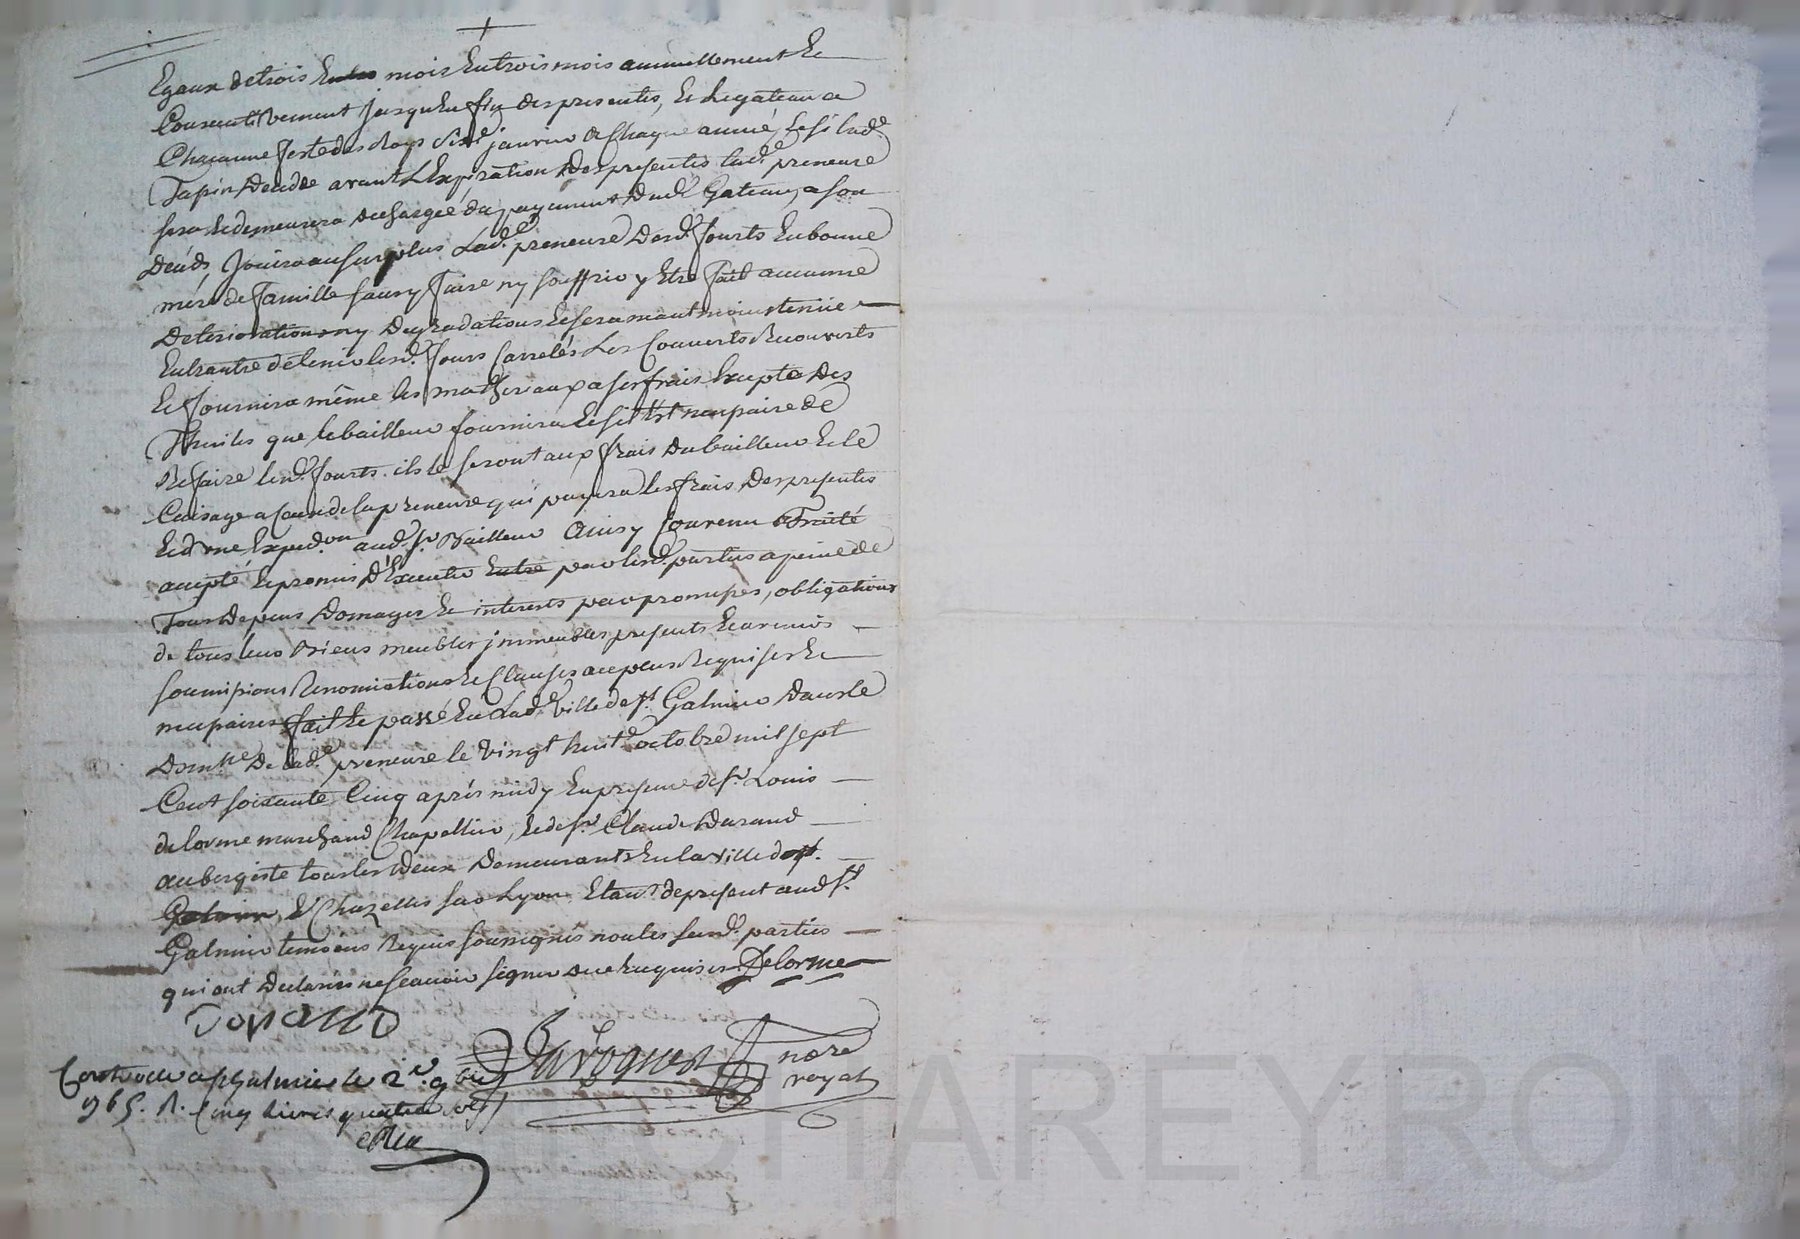 Egaux de trois En trois mois En trois mois annuellement Et
Consecutivement jusqu'En fin des presentes, Et le gateau a
Chacune feste des Roys sixe janvier de chaque année, Et si lade
Tapin decede avant L'Expiration des presentes lade preneure
sera Et demeurera dechargée du payement dudt Gateau, a son
décéds, Jouira au surplus Lade preneure desds fourts En bonne
mére de famille sans y faire ny souffrir y Etre fait aucunne
Deteriorations ny Degradations Et sera neantmoins tenüe
Entrautre de tenir lesds fours Carrelés Les Couverts Recouverts
Et fournira même les matheriaux a ses frais Excepté des
Thuiles que le bailleur fournira Et s'il Est necessaire de
Refaire lesds fourts ils le seront aux frais du bailleur Et le
Cuisage a ceux de la preneure qui payera les frais des presentes
Et d'une Expedon audt sr Bailleur Ainsy Convenu Traité
accepté Et promis d'Executer Entre par lesds parties a peine de
Tous depens Domages Et interests par promesses, obligations
de tous leurs Biens meubles jmmeubles presents Et avenirs
soumissions Renonciations Et Clauses Requises Et
necessaires fait Et passé En Lade ville de st Galmier dans le
Domlle de lade preneure le vingt huite octobre mil sept
Cent soixante Cinq après midy En presence de sr Louis
delorme marchand Chapellier, Et de sr Claude Durand
aubergiste tous les deux Demeurants En la ville de st
Galmier, de Chazelles sur Lyon Etant de present audt st
Galmier temoins Requis soussignés non lesds parties
qui ont declarés ne scavoir signer de ce Enquises Delorme
Durand
Javogues nore
royal
Controllé a st Galmier le 2e 9bre
1765. R. Cinq livres quatre sols